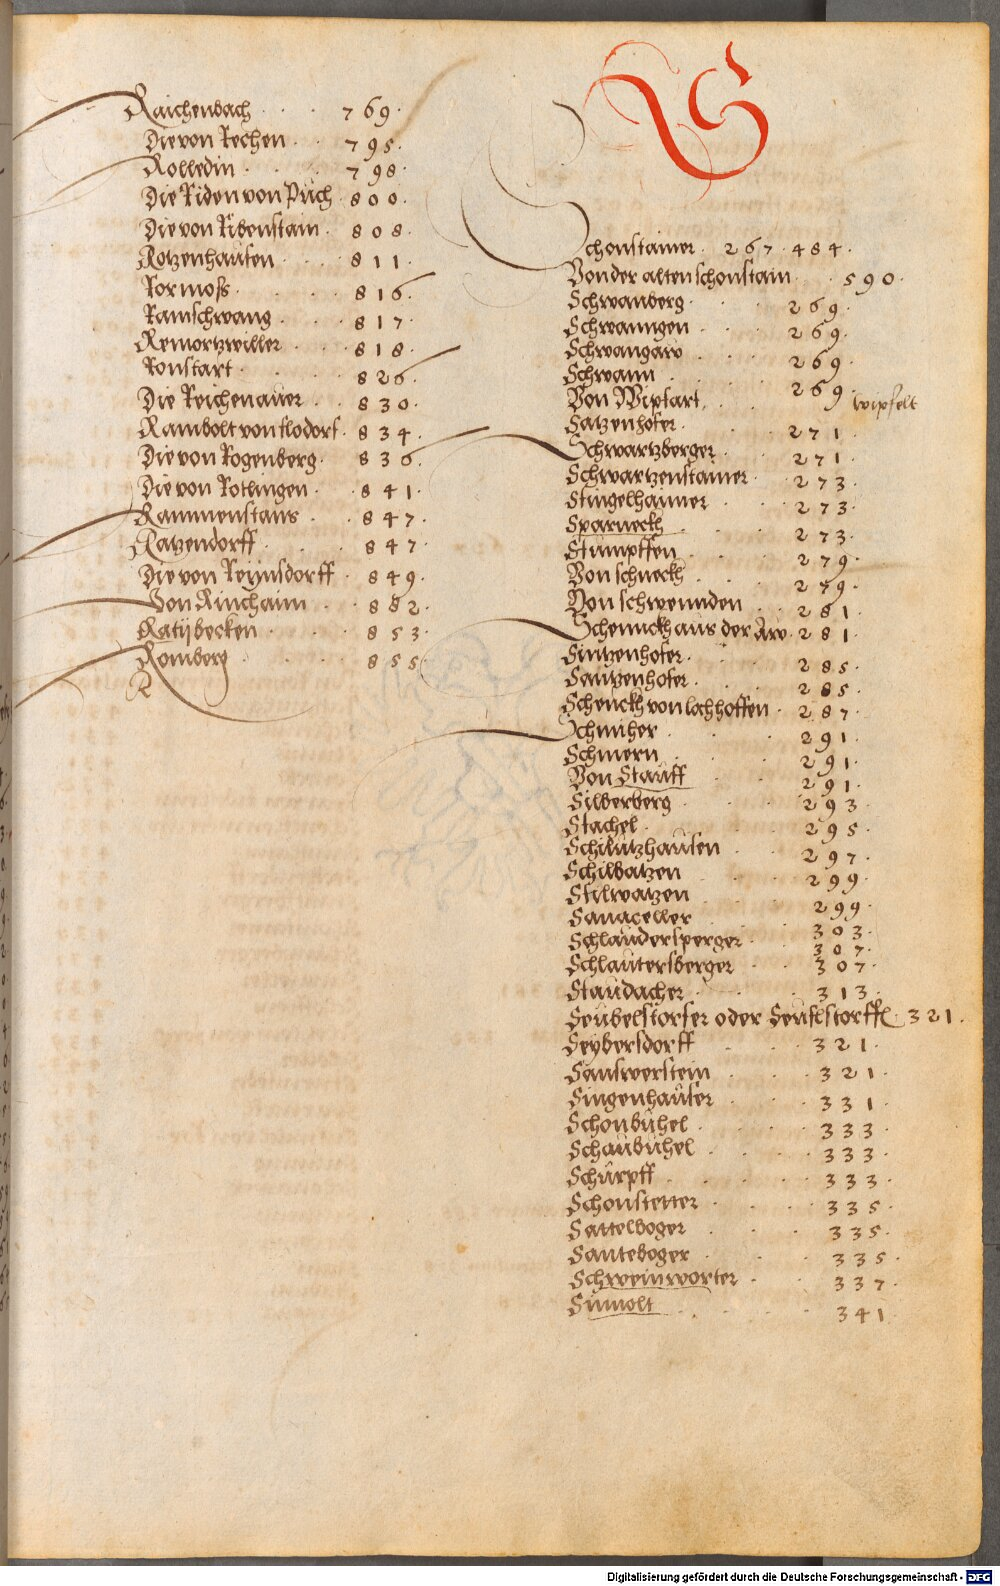 Raichenbach 769
Die von Rechen 795
Rolledin 798
Die Riden von Püch 800
Die von Ribenstain 808
Rotzenhausen 811
Rormoss 816
Ramschwang 817
Remortzwiller 818
Ronstart 826
Die Reichenauer 830
Rambolt von flodorf 834
Die von Rogenberg 836
Die von Rotlingen 841
Rammenstans 847
Ratzendorff 847
Die von Reynsdorff 849
Von Rinchaim 852
Ratybecken 853
Romberg 855
R
S
Schonstainer 267 484
Von der alten schonstain 590
Schwanberg 269
Schwanngen 269
Schwangaw 269
Schwann 269
Von Wipfart wipfelt
Satzenhofer 271
Schwartzberger 271
Schwartzenstainer 273
Stingelhaimer 273
Sparneckh 273
Stumpffen 279
Von schneckh 279
Von schwennden 281
Schennckh aus der Aw 281
Sintzenhofer 285
Sautzenhofer 285
Schenckh von lachhoffen 287
Schmiher 291
Schmiern 291
Von Stauff 291
Silberberg 293
Stachel 295
Schilutzhausen 297
Schilbatzen 299
Stilwatzen 299
Sanaceller 303
Schlaudersperger 307
Schlautersberger 307
Staudacher 313
Seubelstorfer oder Seufelstorffl 321
Seybersdorff 321
Sanswerstein 321
Singenhauser 331
Schonbuhel 333
Schaubuhel 333
Schurpff 333
Schonstetter 335
Sattelboger 335
Santeboger 335
Schweinworter 337
Sinnolt 341
Digitalisierung gefördert durch die Deutsche Forschungsgemeinschaft - DFG